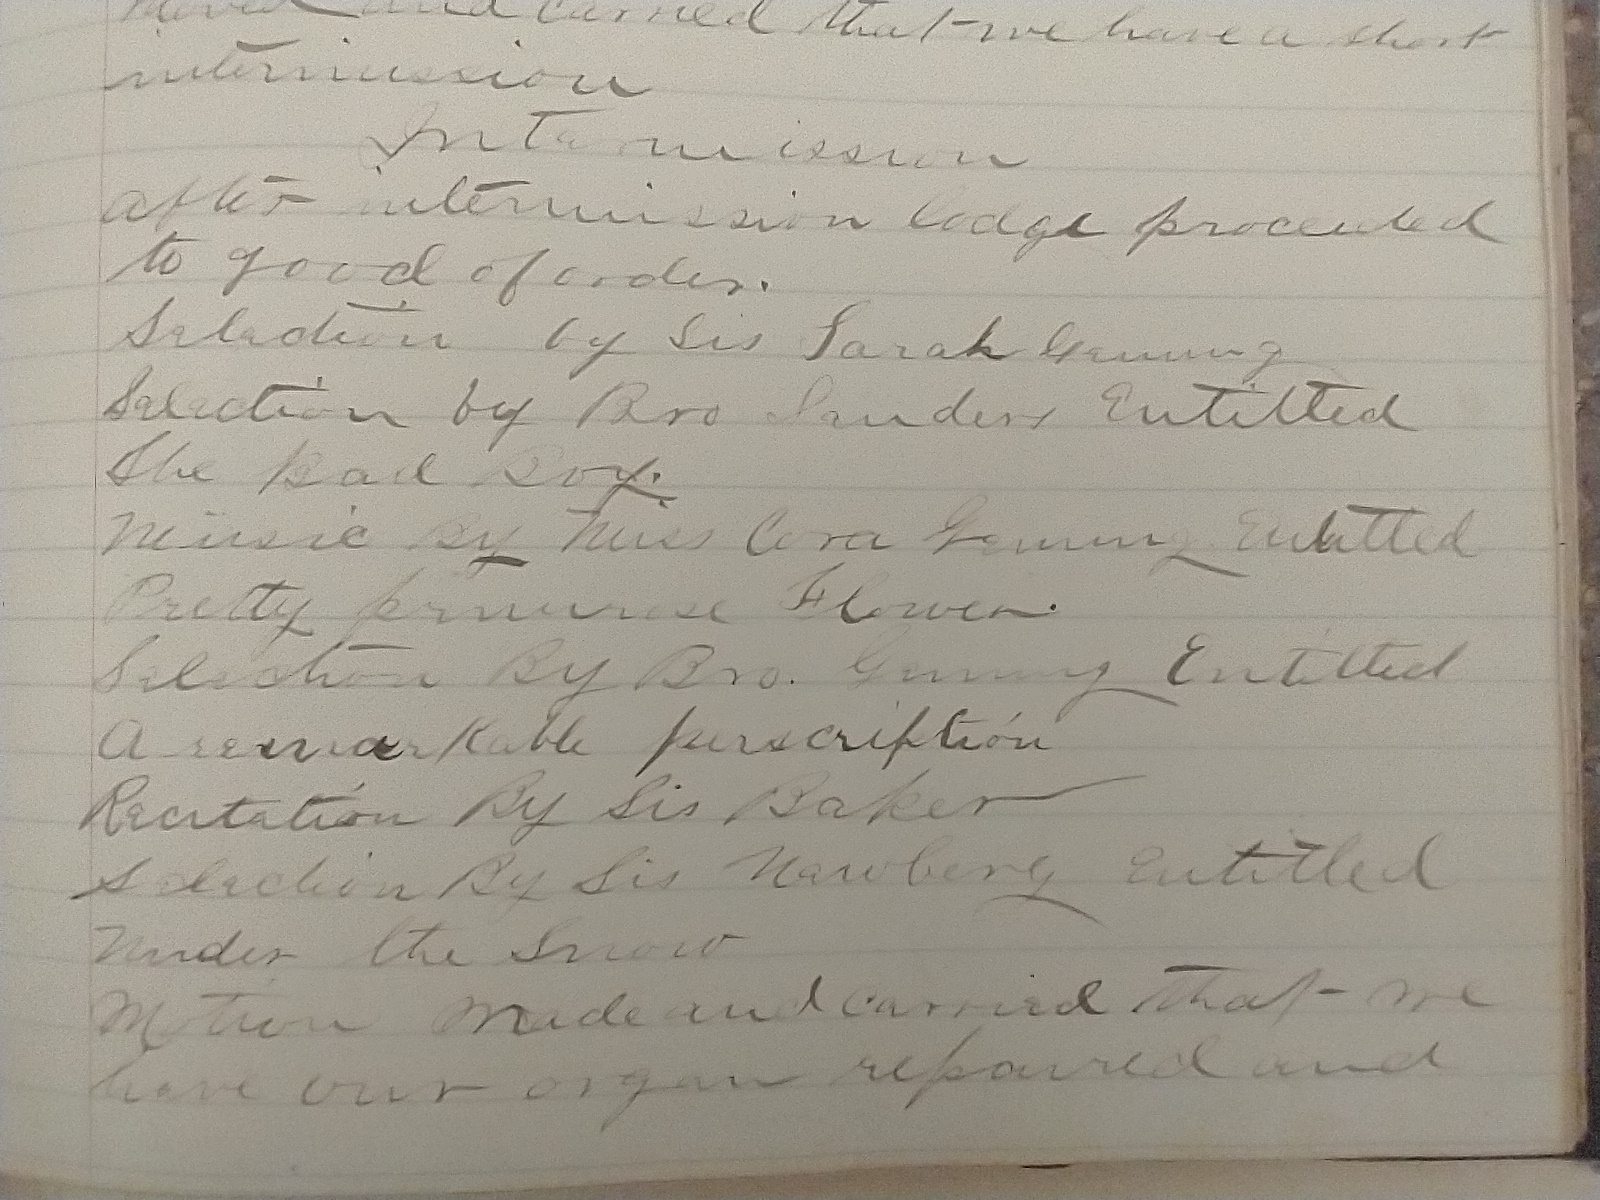 moved and carried that we have a short
intermission
Intermission
after intermission lodge proceeded
to good of order.
Selection by Sis Sarah Genung
Selection by Bro Sanders Entitled
The bad Boy.
Music By Miss Cora Genung Entitled
Pretty primrose Flower.
Selection By Bro. Genung Entitled
A remarkable perscription
Recitation By Sis Baker
Selection By Sis Newberry Entitled
Under the snow
Motion made and carried that we
have our organ repaired and